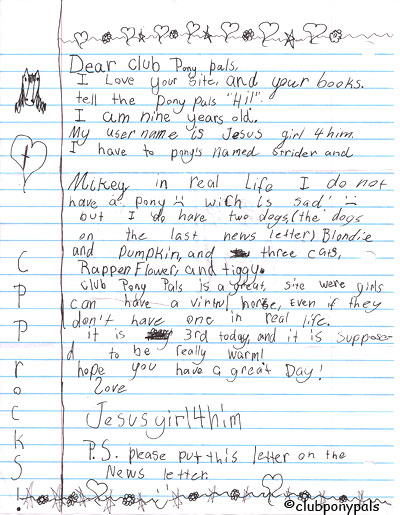 Dear Club Pony Pals,
I Love your Site, and your books.
tell the Pony Pals "Hi!".
I am nine years old.
My username is Jesus girl 4him.
I have to pony's named Strider and
Mikey in real Life I do not
have a pony wich is sad
but I do have two dogs, (the dogs
on the last news letter) Blondie
and Pumpkin, and three cats,
Rapper, Flower, and tiggy.
Club Pony Pals is a great, site were girls
can have a virtul horse, even if they
don't have one in real life.
it is 3rd today, and it is suppose
d to be really warm!
hope you have a great Day!
Love
Jesusgirl4him
P.S. please put this letter on the
News letter.
C
P
P
r
o
c
k
s
!
©clubponypals